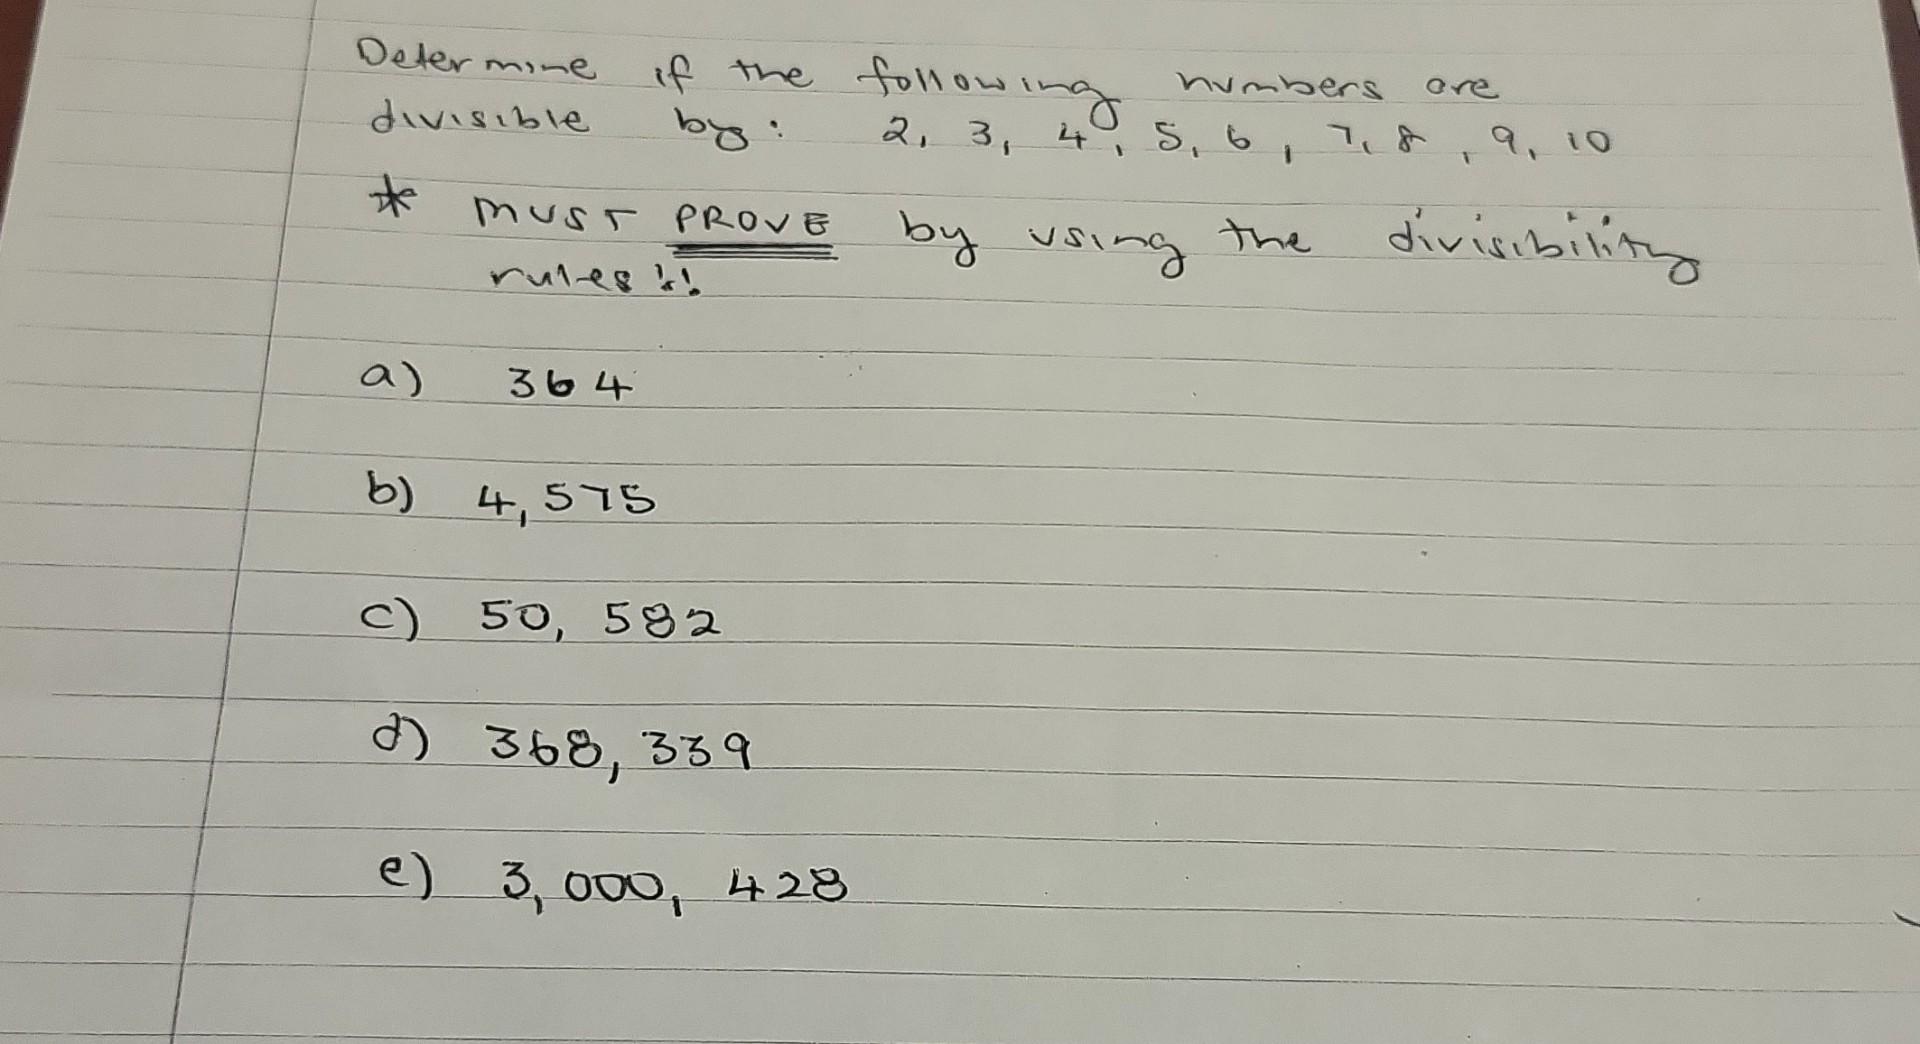 Determine if the following numbers are
divisible by: 2, 3, 4, 5, 6, 7, 8, 9, 10
* MUST PROVE by using the divisibility
rules!!
a) 364
b) 4,575
c) 50,582
d) 368,339
e) 3,000,428